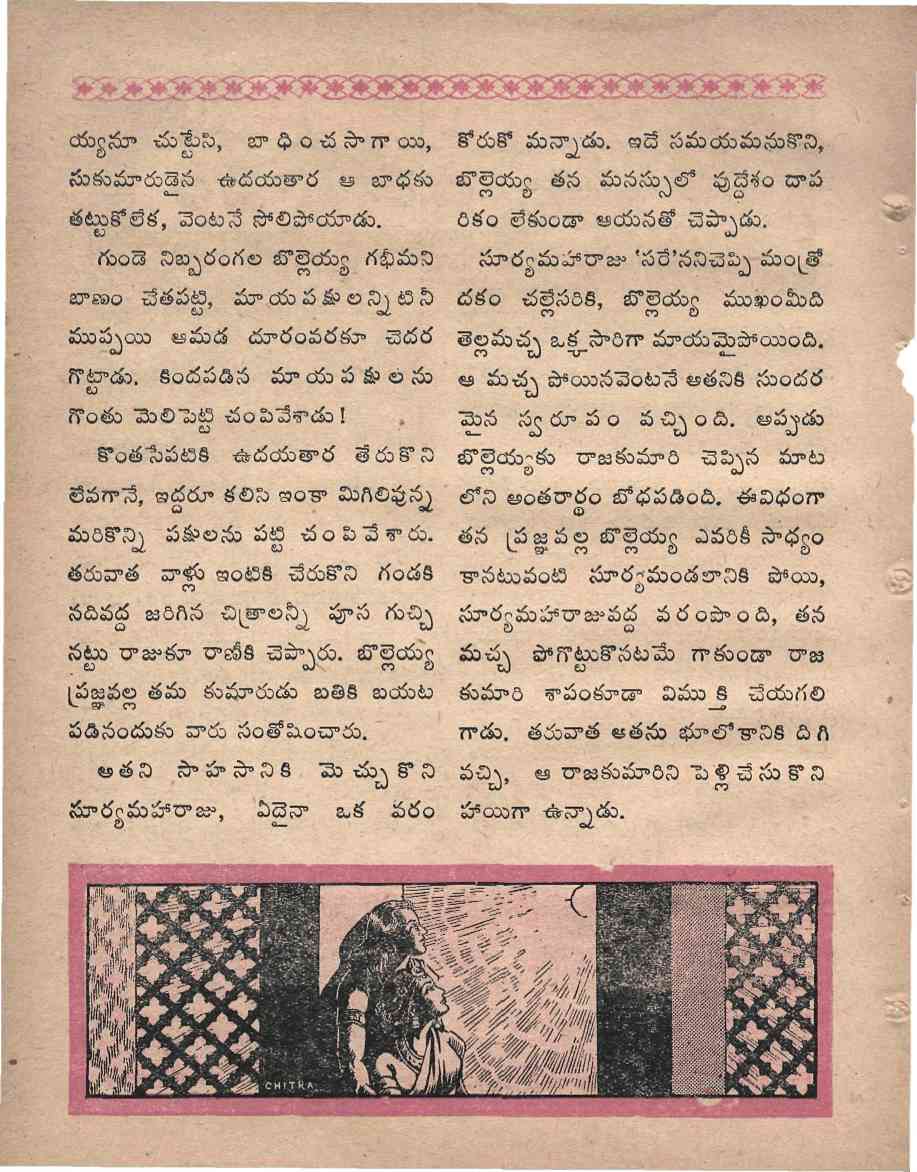 య్యనూ చుట్టేసి, బాధించసాగాయి,
సుకుమారుడైన ఉదయతార ఆ బాధకు
తట్టుకోలేక, వెంటనే సోలిపోయాడు.
గుండె నిబ్బరంగల బొల్లెయ్య గభీమని
బాణం చేతపట్టి, మాయపక్షులన్నిటినీ
ముప్పయి ఆమడ దూరంవరకూ చెదర
గొట్టాడు. కిందపడిన మాయపక్షులను
గొంతు మెలిపెట్టి చంపివేశాడు!
కొంతసేపటికి ఉదయతార తేరుకొని
లేవగానే, ఇద్దరూ కలిసి ఇంకా మిగిలివున్న
మరికొన్ని పక్షులను పట్టి చంపివేశారు.
తరువాత వాళ్లు ఇంటికి చేరుకొని గండకి
నదివద్ద జరిగిన చిత్రాలన్నీ పూస గుచ్చి
నట్టు రాజుకూ రాణీకి చెప్పారు. బొల్లెయ్య
ప్రజ్ఞవల్ల తమ కుమారుడు బతికి బయట
పడినందుకు వారు సంతోషించారు.
అతని సాహసానికి మెచ్చుకొని
సూర్యమహారాజు, ఏదైనా ఒక వరం
కోరుకో మన్నాడు. ఇదే సమయమనుకొని,
బొల్లెయ్య తన మనస్సులో వుద్దేశం దాప
రికం లేకుండా ఆయనతో చెప్పాడు.
సూర్యమహారాజు 'సరే'ననిచెప్పి మంత్రో
దకం చల్లేసరికి, బొల్లెయ్య ముఖంమీది
తెల్లమచ్చ ఒక్కసారిగా మాయమైపోయింది.
ఆ మచ్చ పోయినవెంటనే అతనికి సుందర
మైన స్వరూపం వచ్చింది. అప్పుడు
బొల్లెయ్యకు రాజకుమారి చెప్పిన మాట
లోని అంతరార్థం బోధపడింది. ఈవిధంగా
తన ప్రజ్ఞవల్ల బొల్లెయ్య ఎవరికీ సాధ్యం
కానటువంటి సూర్యమండలానికి పోయి,
సూర్యమహారాజువద్ద వరంపొంది, తన
మచ్చ పోగొట్టుకొనటమే గాకుండా రాజ
కుమారి శాపంకూడా విముక్తి చేయగలి
గాడు. తరువాత అతను భూలోకానికి దిగి
వచ్చి, ఆ రాజకుమారిని పెళ్లిచేసుకొని
హాయిగా ఉన్నాడు.
CHITRA